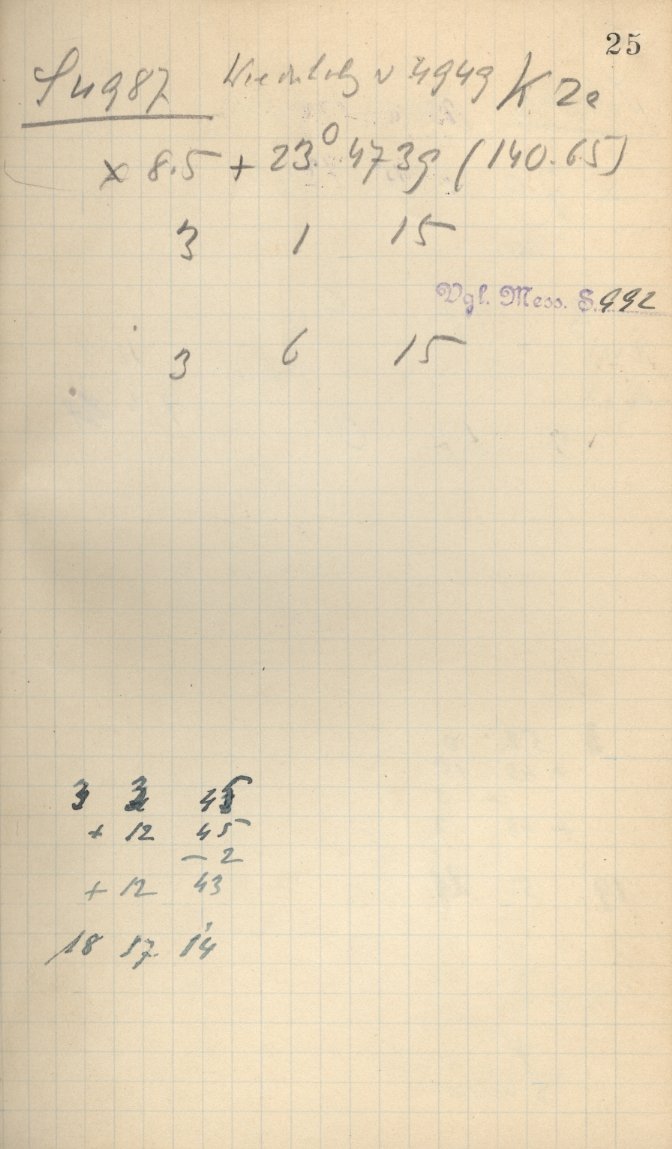 25
S 4987 Wiederholg v 4949 K Ze
x 8.5 + 23° 4739 (140.65)
3 1 15
Vgl. Mess. S. 992
3 6 15
3 3 45
+ 12 45
- 2
+ 12 43
18 57 14